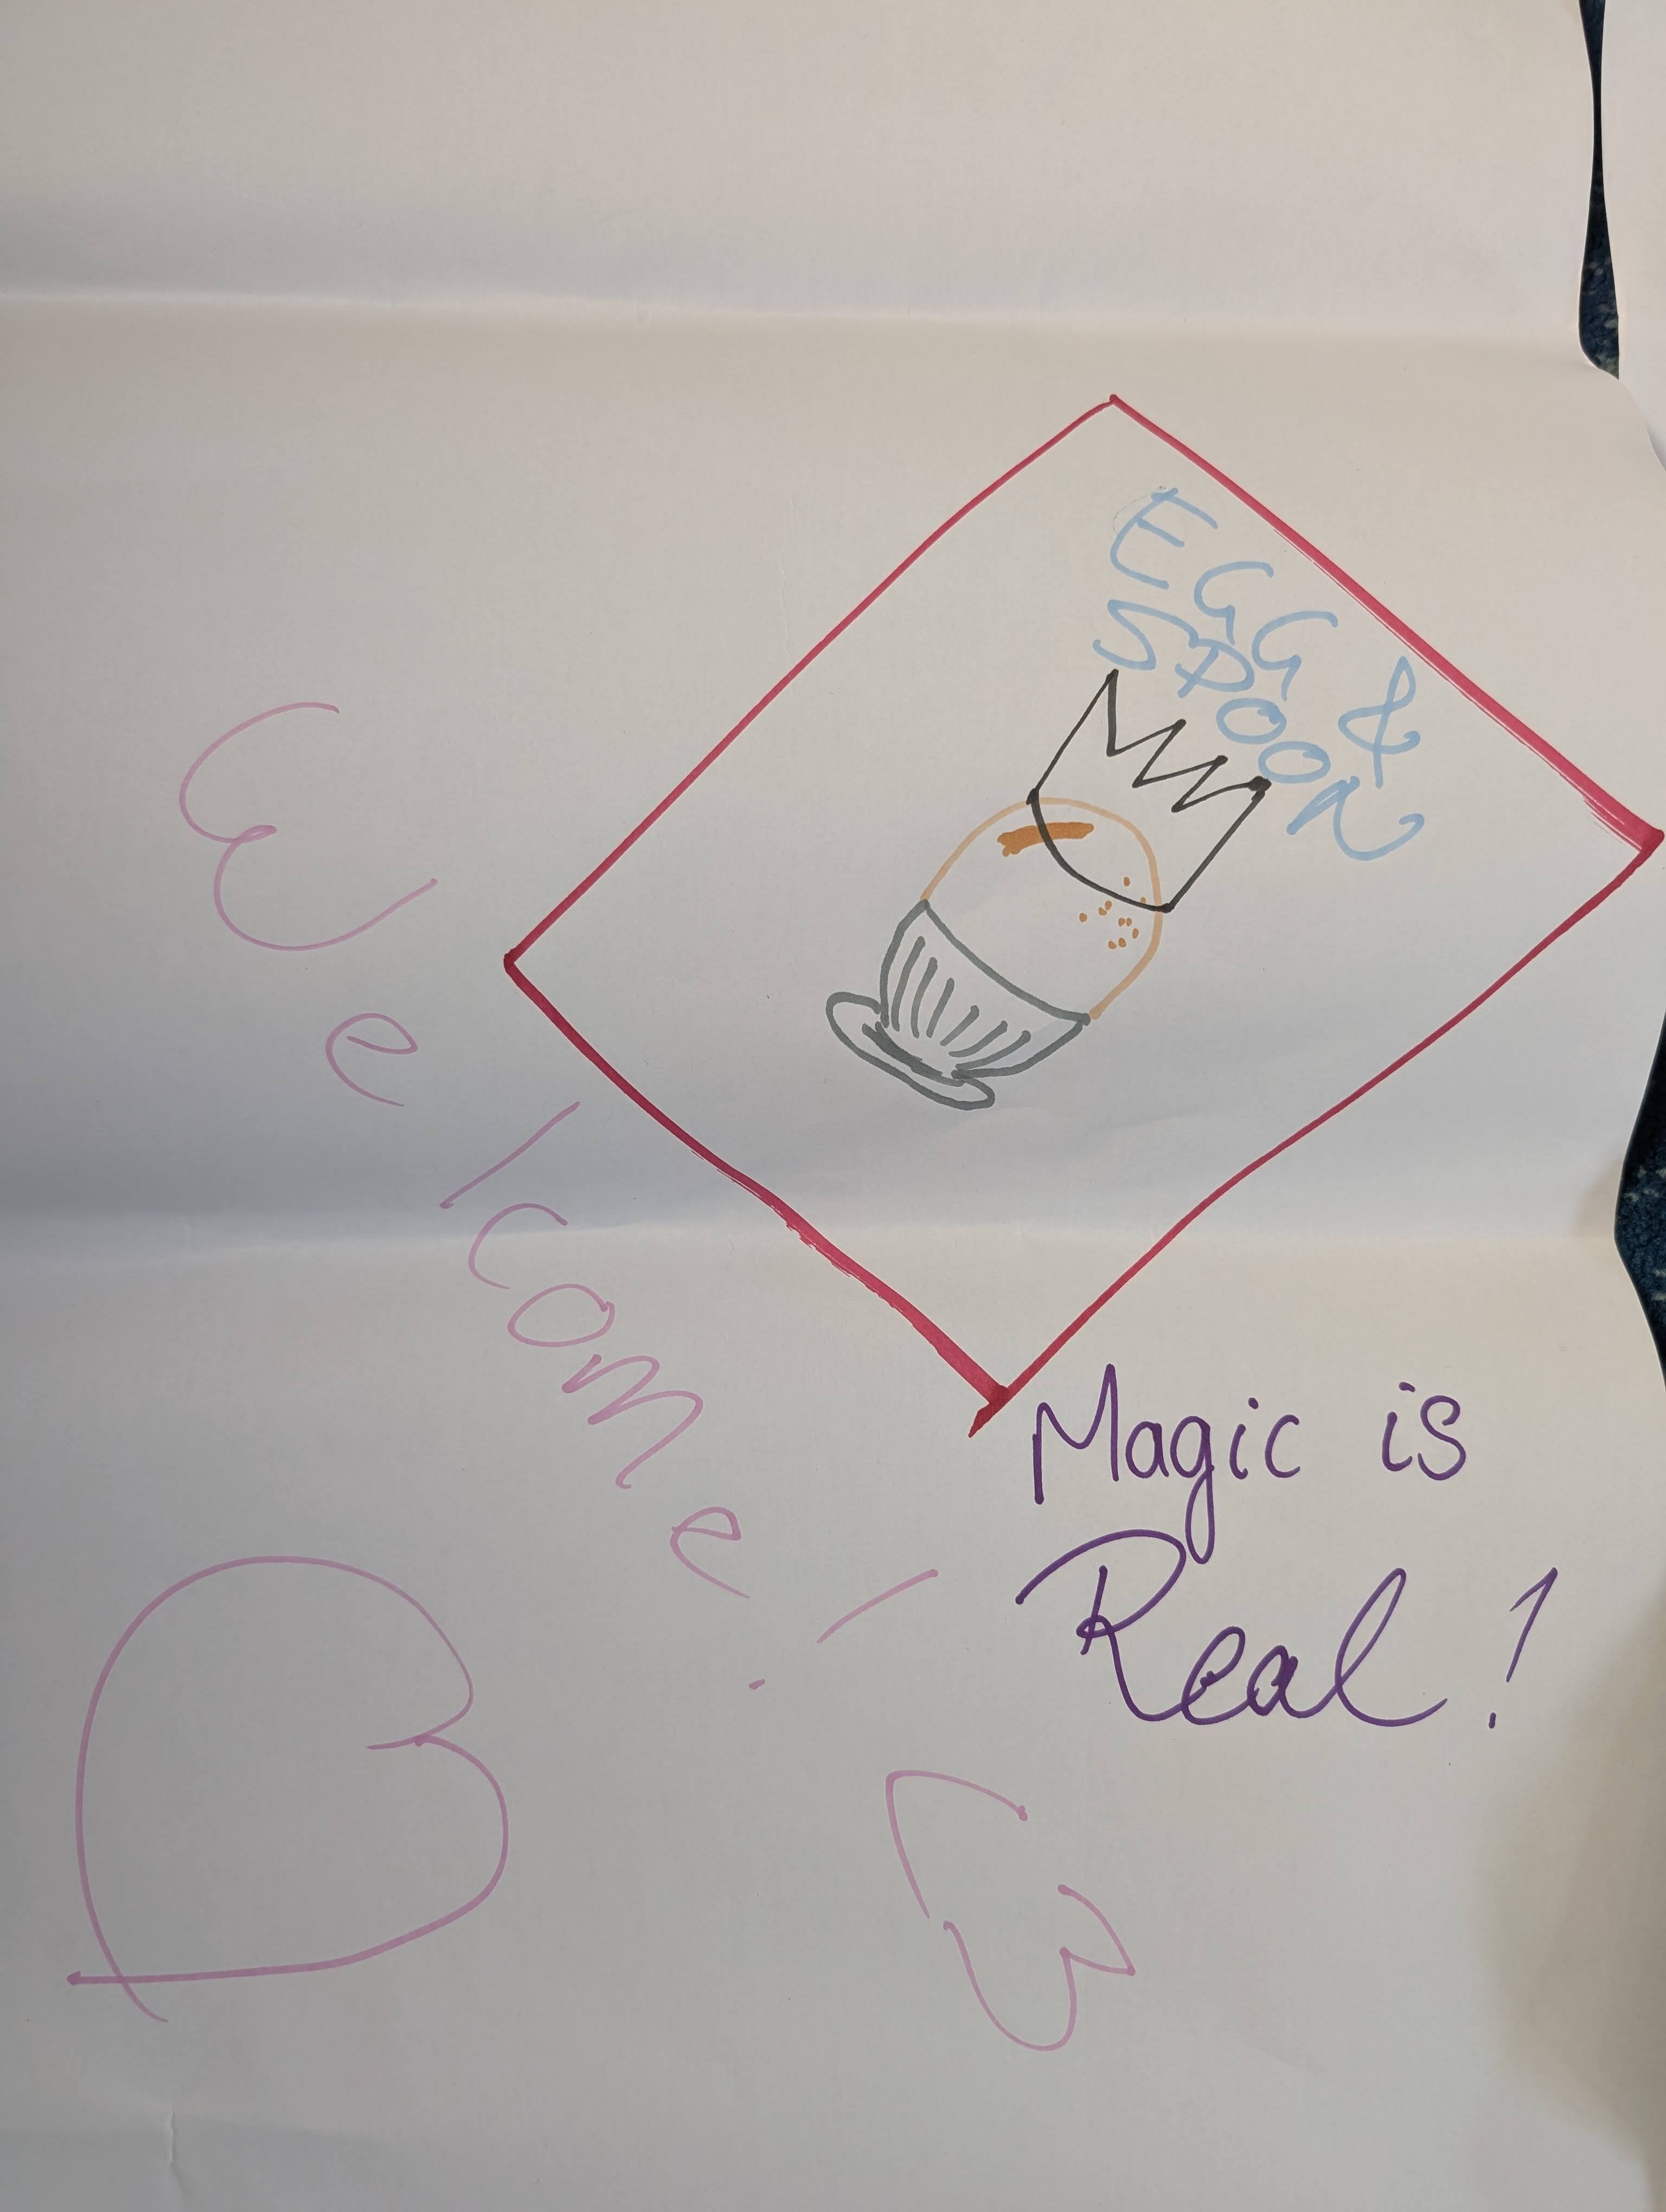 EGG &
SPOON
Welcome!
Magic is
Real!
<3